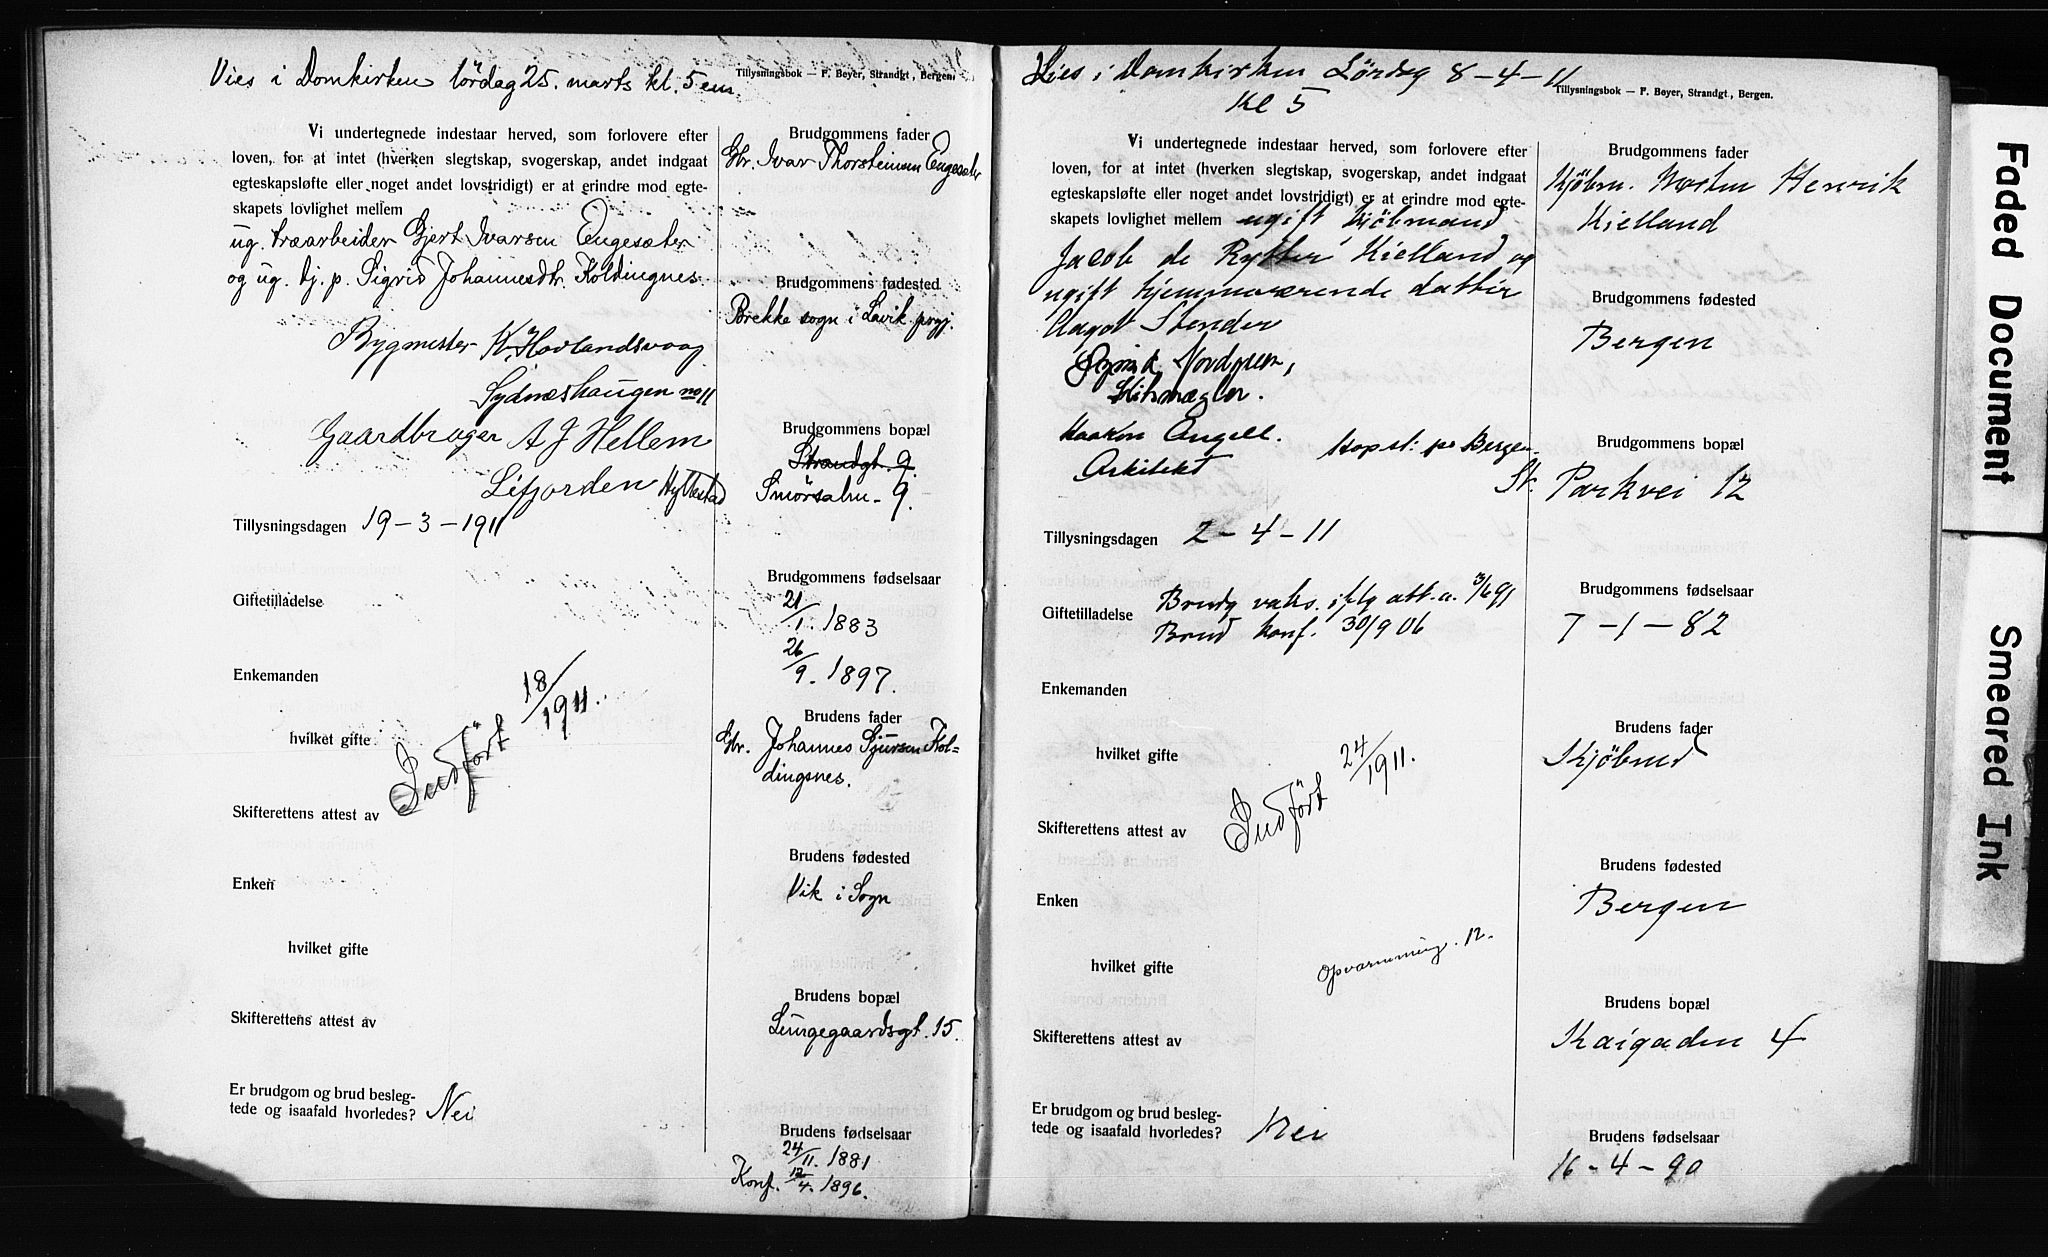 Vies i Domkirken lördag 25. marts kl. 5 em.
Tillysningsbok — F. Beyer, Strandgt., Bergen.
Vi undertegnede indestaar herved, som forlovere efter
loven, for at intet (hverken slegtskap, svogerskap, andet indgaat
egteskapsløfte eller noget andet lovstridigt) er at erindre mod egte-
skapets lovlighet mellem
ug. træarbeider Gjert Ivarsen Engesæter
og ug. tj. p. Sigrid Johannesdtr. Koldingnes.
Bygmester K. Hovlandsvaag
Sydneshaugen no 11
Gaardbruger A J Hellem
Lifjorden Hyllestad
Tillysningsdagen 19-3-1911
Giftetilladelse
Enkemanden
hvilket gifte
Indført 18/1911.
Skifterettens attest av
Enken
hvilket gifte
Skifterettens attest av
Er brudgom og brud besleg-
tede og isaafald hvorledes? Nei
Brudgommens fader
Gbr. Ivar Thorsteinsen Engesæter
Brudgommens fødested
Brekke sogn i Lavik prgj.
Brudgommens bopæl
Strandgt. 9
Smörsalm. 9.
Brudgommens fødselsaar
21/1. 1883
26/9. 1897.
Brudens fader
Gbr. Johannes Sjursen Kol-
dingsnes.
Brudens fødested
Vik i Sogn
Brudens bopæl
Lungegaardsgt. 15.
Brudens fødselsaar
24/11. 1881
Konf. 12/4. 1896.
Vies i Domkirken Lördag 8-4-11
Kl 5
Tillysningsbok — F. Beyer, Strandgt., Bergen.
Vi undertegnede indestaar herved, som forlovere efter
loven, for at intet (hverken slegtskap, svogerskap, andet indgaat
egteskapsløfte eller noget andet lovstridigt) er at erindre mod egte-
skapets lovlighet mellem ugift kjöbmand
Jacob de Rytter Kielland og
ugift hjemmoværende datter
Aagot Stender
Nordgreen,
Skibsmægler.
Haakon Angell.
Arkitekt
Kop st: pr Bergen
St.
Tillysningsdagen 2-4-11
Giftetilladelse Brudg vaks. iflg att. a. 3/6 91
Brud konf. 30/9 06
Enkemanden
hvilket gifte
Indført 24/1911.
Skifterettens attest av
Enken
hvilket gifte
Opvarmning. 12.
Skifterettens attest av
Er brudgom og brud besleg-
tede og isaafald hvorledes? Nei
Brudgommens fader
Kjöbm. Morten Henrik
Kielland
Brudgommens fødested
Bergen
Brudgommens bopæl
Parkvei 12
Brudgommens fødselsaar
7-1-82
Brudens fader
Kjöbmd
Brudens fødested
Bergen
Brudens bopæl
Kaigaden 4
Brudens fødselsaar
16-4-90
Faded Document
Smeared Ink